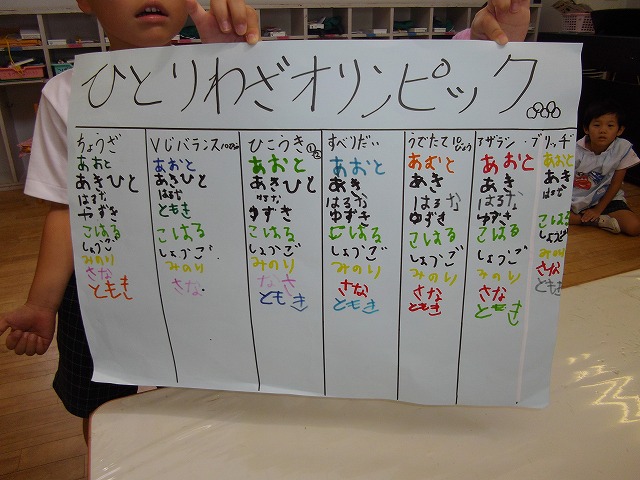 ひとりわざオリンピック
ちょうざ
あおと
あきひと
はるな
ゆずき
こはる
しょうご
みのり
さな
ともき
Vじバランス10びょう
あおと
あきひと
はるな
ともき
こはる
しょうご
みのり
さな
ひこうき①②
あおと
あきひと
はるな
ゆずき
こはる
しょうご
みのり
さな
ともき
すべりだい
あおと
あき
はるな
ゆずき
こはる
しょうご
みのり
さな
ともき
うでたて10びょう
あおと
あき
はるな
ゆずき
こはる
しょうご
みのり
さな
ともき
アザラシ・ブリッヂ
あおと
あき
はるな
ゆずき
こはる
しょうご
みのり
さな
ともき
あおと
あき
はるな
こはる
しょうご
みのり
さな
ともき